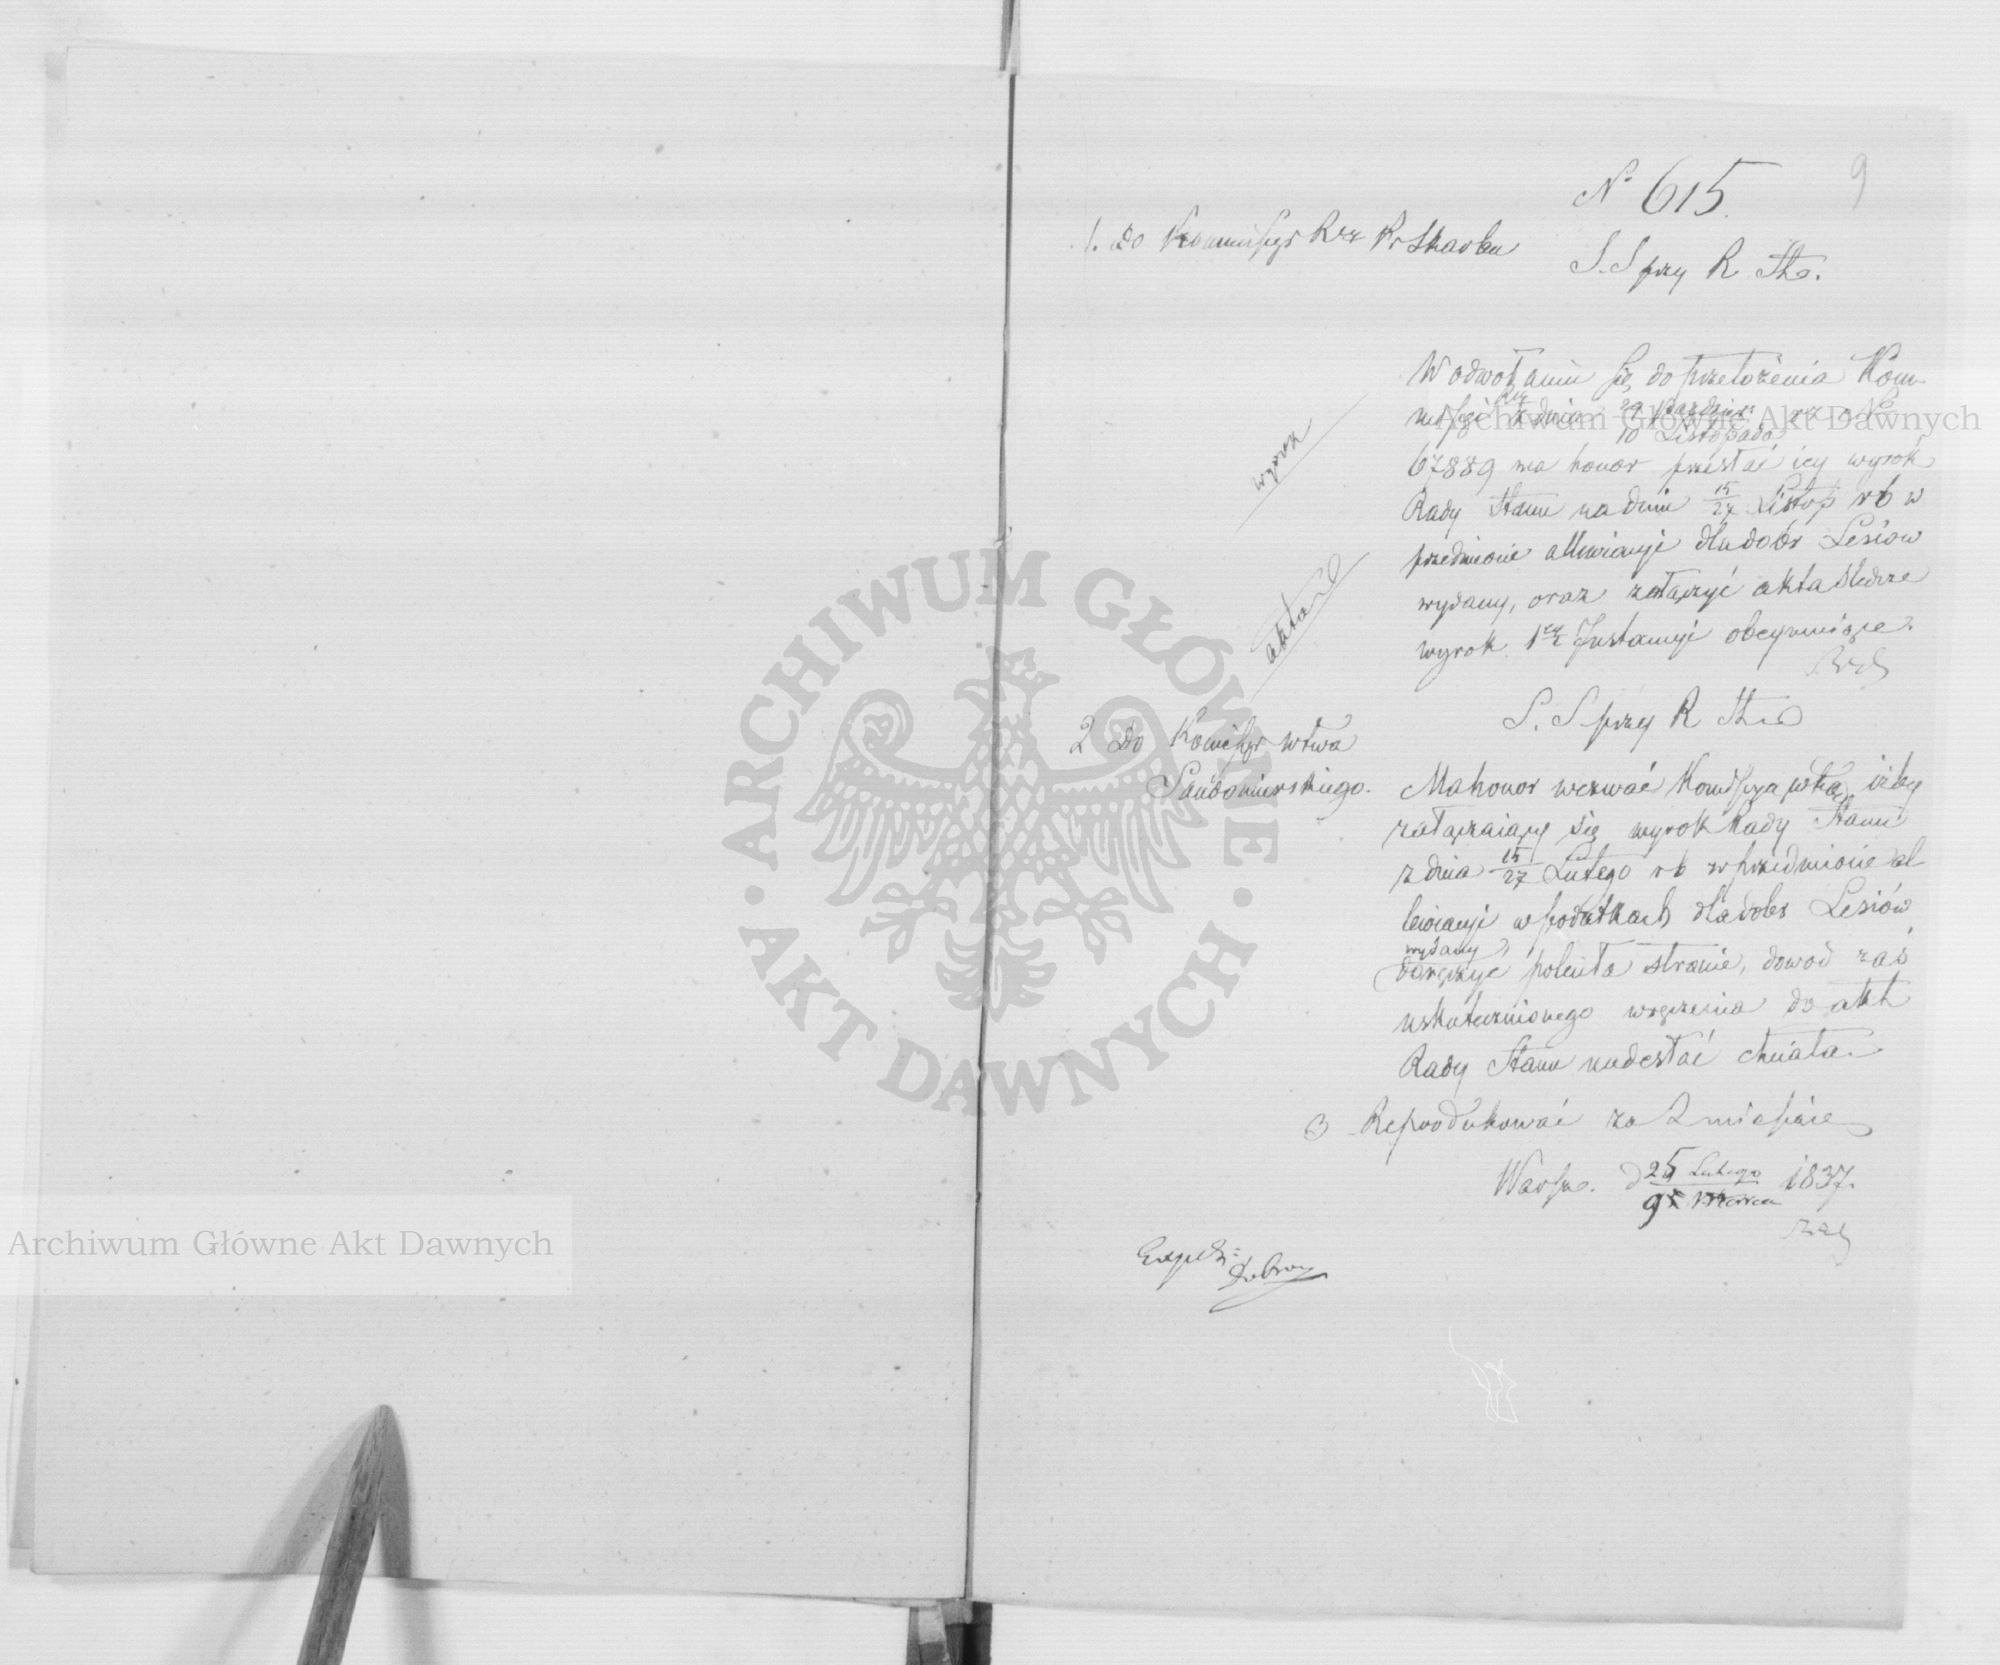 9
Nº 615.
1. Do Kommissyi Rzz Pr Skarbu
S. S przy R Stu.
W odwołaniu się do przełożenia Kom
missyi z dnia 29 Paździer: / 10 Listopada rz Nº
67889 ma honor przesłać iey wyrok
Rady Stanu na dniu 15/27 Listop rb w
przedmiocie allewiacyi dla dóbr Lesiow
wydany, oraz załączyć akta śledcze
wyrok 1ey Instancyi obeymuiące.
wyrok
akta
S. S przy R Stu
2 Do Komissyi wtwa
Sandomierskiego.
Ma honor wezwać Kommissyą wtką ażeby
załączaiący się wyrok Rady Stanu
z dnia 15/27 Lutego rb w przedmiocie al
lewiacyi w podatkach dla dobr Lesiów
wydany,
doręczyć polećiła stronie, dowod zaś
uskutecznionego wręczenia do akt
Rady Stanu nadesłać chciała.
3 Reprodukować za 2 miesiące
Warsza. d 25 Lutego / 9 Marca 1837.
Exped:
Archiwum Główne Akt Dawnych
ARCHIWUM GŁÓWNE
AKT DAWNYCH
Archiwum Główne Akt Dawnych